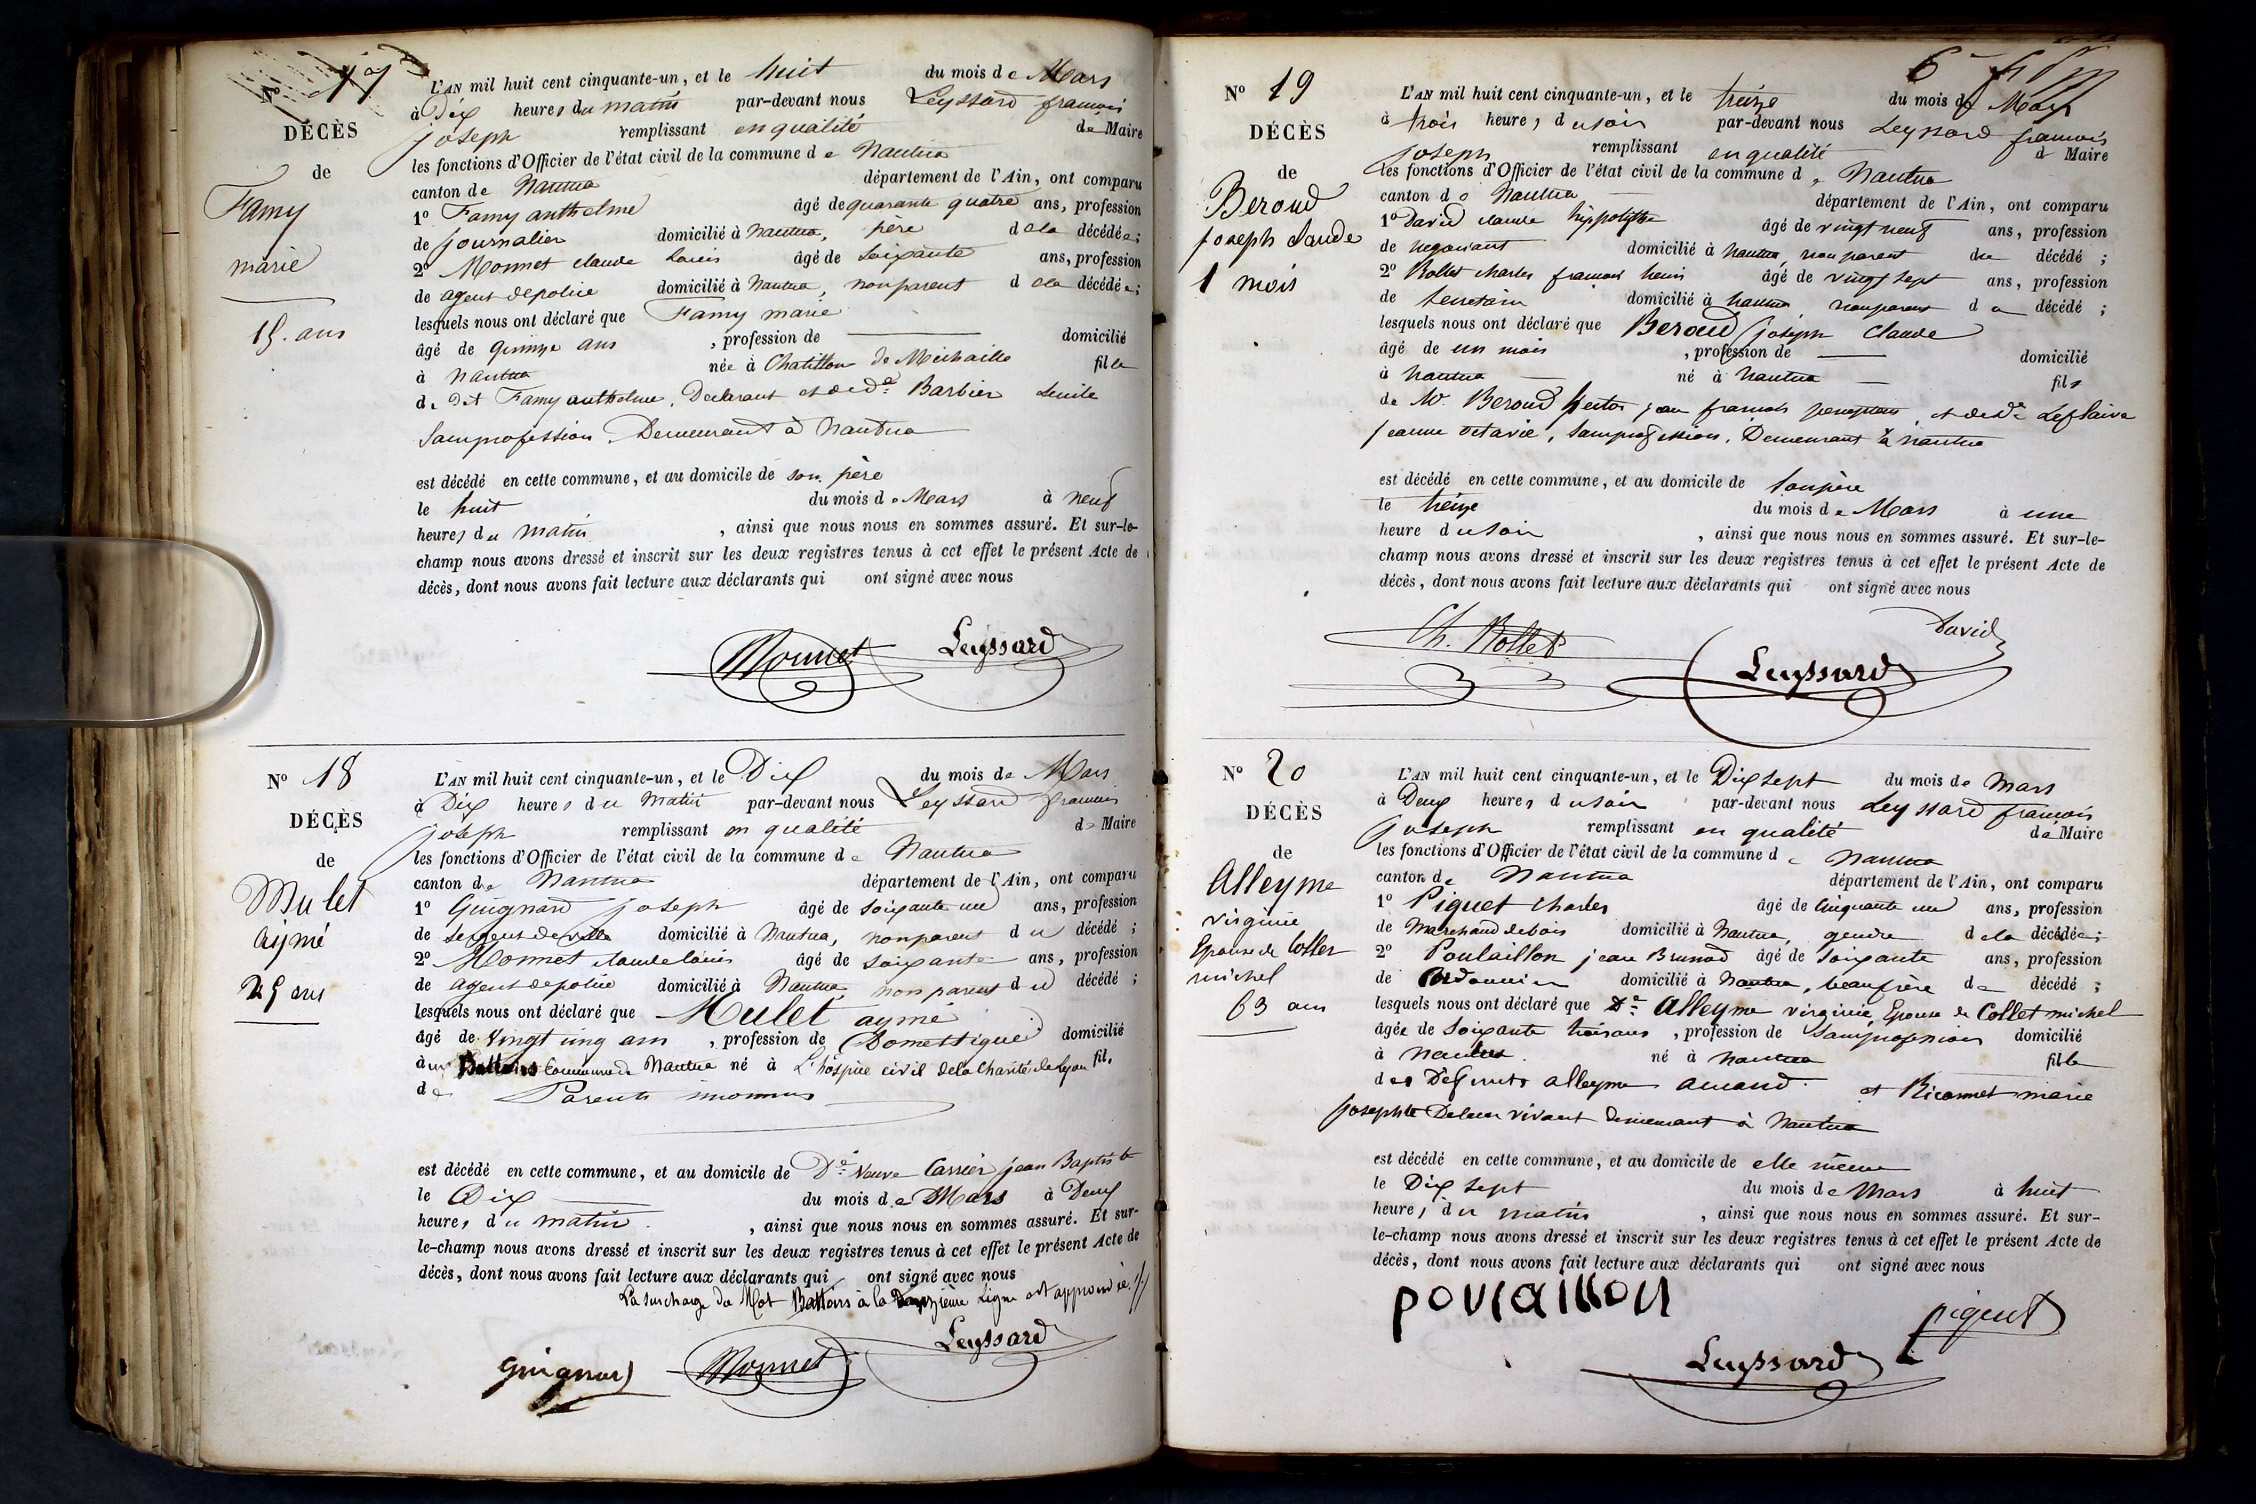 N° 17
DÉCÈS
de
Famy
marie
15. ans
L'AN mil huit cent cinquante-un, et le huit du mois de Mars
à Dix heures du matin par-devant nous Leyssard francois
joseph remplissant en qualité de Maire
les fonctions d'Officier de l'état civil de la commune de Nantua
canton de Nantua département de l'Ain, ont comparu
1° Famy anthelme âgé de quarante quatre ans, profession
de journalier domicilié à Nantua, père de la décédée;
2° Monnet claude Louis âgé de soixante ans, profession
de agent de police domicilié à Nantua, non parent de la décédée;
lesquels nous ont déclaré que Famy marie
âgé de quinze ans, profession de domicilié
à Nantua née à Chatillon de Michaille fille
de dit Famy anthelme, Declarant et de de Barbier
sans profession, Demeurant à Nantua
est décédé en cette commune, et au domicile de son père
le huit du mois de Mars à neuf
heures du matin, ainsi que nous nous en sommes assuré. Et sur-le-
champ nous avons dressé et inscrit sur les deux registres tenus à cet effet le présent Acte de
décès, dont nous avons fait lecture aux déclarants qui ont signé avec nous
Monnet Leyssard
N° 18
DÉCÈS
de
Mulet
aymé
25 ans
L'AN mil huit cent cinquante-un, et le Dix du mois de Mars
à Dix heures du Matin par-devant nous Leyssard francois
joseph remplissant en qualité de Maire
les fonctions d'Officier de l'état civil de la commune de Nantua
canton de Nantua département de l'Ain, ont comparu
1° Guignard joseph âgé de soixante un ans, profession
de sergent de ville domicilié à Nantua, non parent du décédé;
2° Monnet claude louis âgé de soixante ans, profession
de agent de police domicilié à Nantua non parent du décédé;
lesquels nous ont déclaré que Mulet aymé
âgé de vingt cinq ans, profession de Domestique domicilié
aux Battoirs Commune de Nantua né à L'hospice civil de la Charité de Lyon fils
de Parents inconnus
est décédé en cette commune, et au domicile de De Veuve Carrier jean Baptiste
le Dix du mois de Mars à Deux
heures du matin, ainsi que nous nous en sommes assuré. Et sur-
le-champ nous avons dressé et inscrit sur les deux registres tenus à cet effet le présent Acte de
décès, dont nous avons fait lecture aux déclarants qui ont signé avec nous
La surcharge du Mot Battoirs à la Ligne est approuvée.
Guignard Monnet Leyssard
6
N° 19
DÉCÈS
de
Beroud
joseph claude
1 mois
L'AN mil huit cent cinquante-un, et le treize du mois de Mars
à trois heures du soir par-devant nous Leyssard francois
joseph remplissant en qualité de Maire
les fonctions d'Officier de l'état civil de la commune de Nantua
canton de Nantua département de l'Ain, ont comparu
1° David claude hippolythe âgé de vingt neuf ans, profession
de negociant domicilié à Nantua, non parent du décédé;
2° Bollet charles francois henri âgé de vingt sept ans, profession
de Secretaire domicilié à Nantua non parent du décédé;
lesquels nous ont déclaré que Beroud joseph Claude
âgé de un mois, profession de domicilié
à Nantua né à Nantua fils
de Mr. Beroud hector jean francois et de De
jeanne octavie, sans profession, Demeurant à Nantua
est décédé en cette commune, et au domicile de son père
le treize du mois de Mars à une
heure du soir, ainsi que nous nous en sommes assuré. Et sur-le-
champ nous avons dressé et inscrit sur les deux registres tenus à cet effet le présent Acte de
décès, dont nous avons fait lecture aux déclarants qui ont signé avec nous
Ch. Bollet David
Leyssard
N° 20
DÉCÈS
de
Alleyme
virginie
Epouse de Collet
michel
63 ans
L'AN mil huit cent cinquante-un, et le Dix sept du mois de Mars
à Deux heures du soir par-devant nous Leyssard francois
joseph remplissant en qualité de Maire
les fonctions d'Officier de l'état civil de la commune de Nantua
canton de Nantua département de l'Ain, ont comparu
1° Piquet charles âgé de Cinquante un ans, profession
de Marchand de bois domicilié à Nantua, gendre de la décédée;
2° Poulaillon jean Brunod âgé de soixante ans, profession
de Cordonnier domicilié à Nantua, beau frère de décédé;
lesquels nous ont déclaré que De Alleyme virginie, Epouse de Collet michel
âgée de Soixante trois ans, profession de Sans profession domicilié
à Nantua né à Nantua fille
des Défunts alleyme amand et marie
josephte De leur vivant demeurant à Nantua
est décédé en cette commune, et au domicile de elle même
le Dix sept du mois de Mars à huit
heures du matin, ainsi que nous nous en sommes assuré. Et sur-
le-champ nous avons dressé et inscrit sur les deux registres tenus à cet effet le présent Acte de
décès, dont nous avons fait lecture aux déclarants qui ont signé avec nous
poulaillon piquet
Leyssard